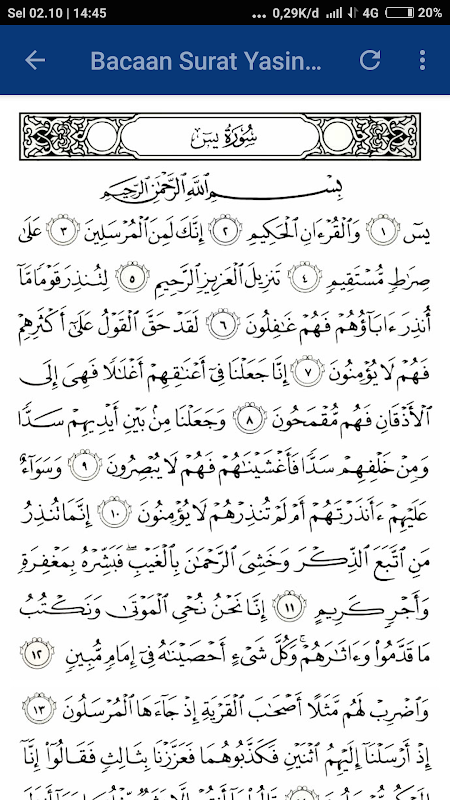 Sel 02.10 | 14:45 ... 0,29K/d 4G 20%
Bacaan Surat Yasin...
سُورَةُ يسٓ
بِسْمِ ٱللَّهِ ٱلرَّحْمَٰنِ ٱلرَّحِيمِ
يسٓ ١ وَٱلْقُرْءَانِ ٱلْحَكِيمِ ٢ إِنَّكَ لَمِنَ ٱلْمُرْسَلِينَ ٣ عَلَىٰ
صِرَٰطٍ مُّسْتَقِيمٍ ٤ تَنزِيلَ ٱلْعَزِيزِ ٱلرَّحِيمِ ٥ لِتُنذِرَ قَوْمًا مَّآ
أُنذِرَ ءَابَآؤُهُمْ فَهُمْ غَٰفِلُونَ ٦ لَقَدْ حَقَّ ٱلْقَوْلُ عَلَىٰٓ أَكْثَرِهِمْ
فَهُمْ لَا يُؤْمِنُونَ ٧ إِنَّا جَعَلْنَا فِىٓ أَعْنَٰقِهِمْ أَغْلَٰلًا فَهِىَ إِلَى
ٱلْأَذْقَانِ فَهُم مُّقْمَحُونَ ٨ وَجَعَلْنَا مِنۢ بَيْنِ أَيْدِيهِمْ سَدًّا
وَمِنْ خَلْفِهِمْ سَدًّا فَأَغْشَيْنَٰهُمْ فَهُمْ لَا يُبْصِرُونَ ٩ وَسَوَآءٌ
عَلَيْهِمْ ءَأَنذَرْتَهُمْ أَمْ لَمْ تُنذِرْهُمْ لَا يُؤْمِنُونَ ١٠ إِنَّمَا تُنذِرُ
مَنِ ٱتَّبَعَ ٱلذِّكْرَ وَخَشِىَ ٱلرَّحْمَٰنَ بِٱلْغَيْبِ ۖ فَبَشِّرْهُ بِمَغْفِرَةٍ
وَأَجْرٍ كَرِيمٍ ١١ إِنَّا نَحْنُ نُحْىِ ٱلْمَوْتَىٰ وَنَكْتُبُ
مَا قَدَّمُوا۟ وَءَاثَٰرَهُمْ ۚ وَكُلَّ شَىْءٍ أَحْصَيْنَٰهُ فِىٓ إِمَامٍ مُّبِينٍ ١٢
وَٱضْرِبْ لَهُم مَّثَلًا أَصْحَٰبَ ٱلْقَرْيَةِ إِذْ جَآءَهَا ٱلْمُرْسَلُونَ ١٣
إِذْ أَرْسَلْنَآ إِلَيْهِمُ ٱثْنَيْنِ فَكَذَّبُوهُمَا فَعَزَّزْنَا بِثَالِثٍ فَقَالُوٓا۟ إِنَّآ